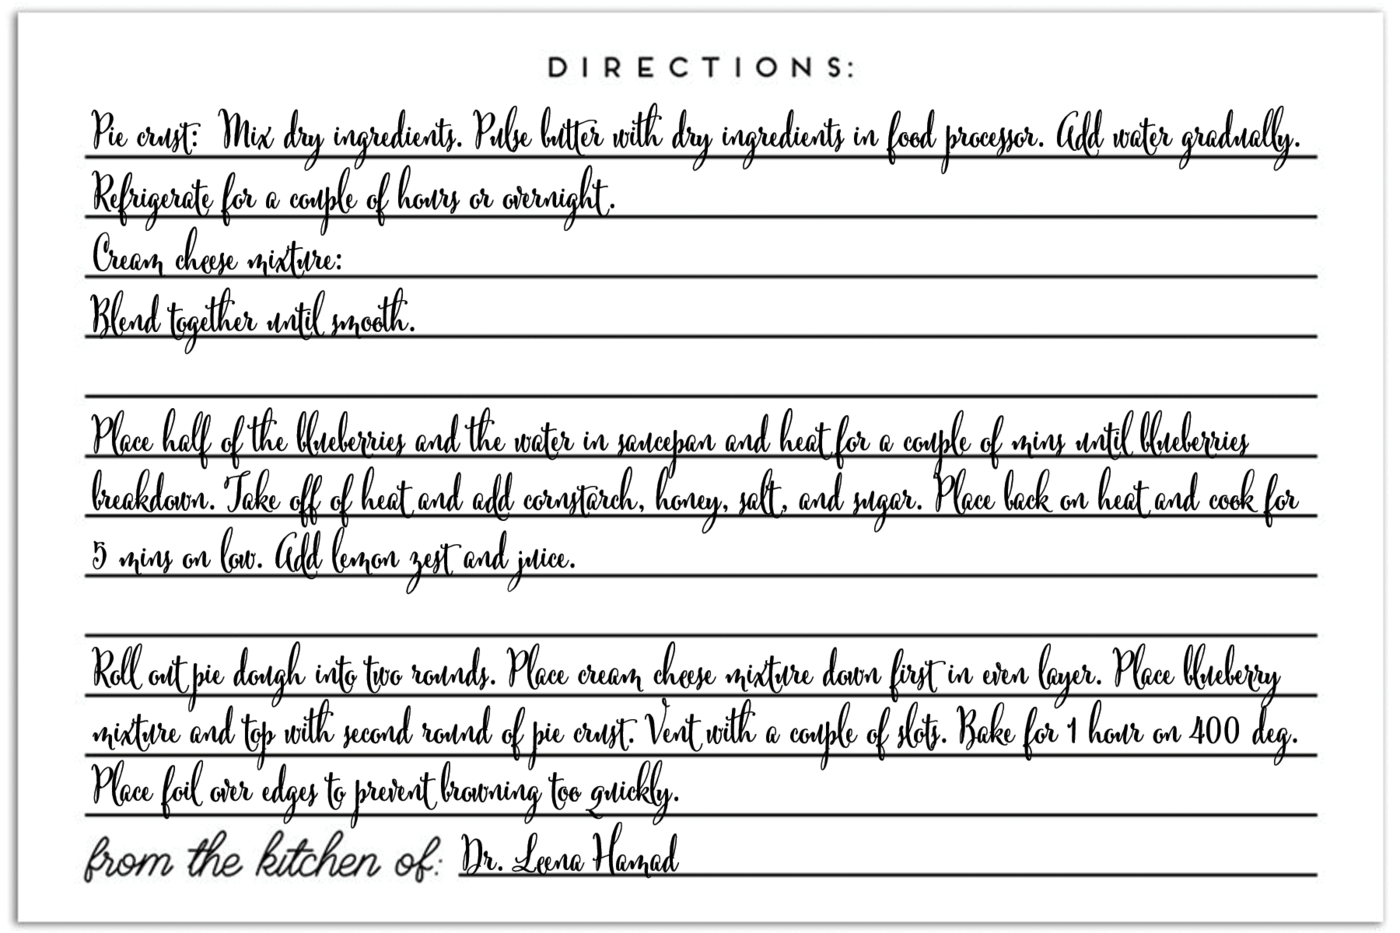 DIRECTIONS:
Pie crust: Mix dry ingredients. Pulse butter with dry ingredients in food processor. Add water gradually.
Refrigerate for a couple of hours or overnight.
Cream cheese mixture:
Blend together until smooth.
Place half of the blueberries and the water in saucepan and heat for a couple of mins until blueberries
breakdown. Take off of heat and add cornstarch, honey, salt, and sugar. Place back on heat and cook for
5 mins on low. Add lemon zest and juice.
Roll out pie dough into two rounds. Place cream cheese mixture down first in even layer. Place blueberry
mixture and top with second round of pie crust. Vent with a couple of slots. Bake for 1 hour on 400 deg.
Place foil over edges to prevent browning too quickly.
from the kitchen of: Dr. Leena Hamad